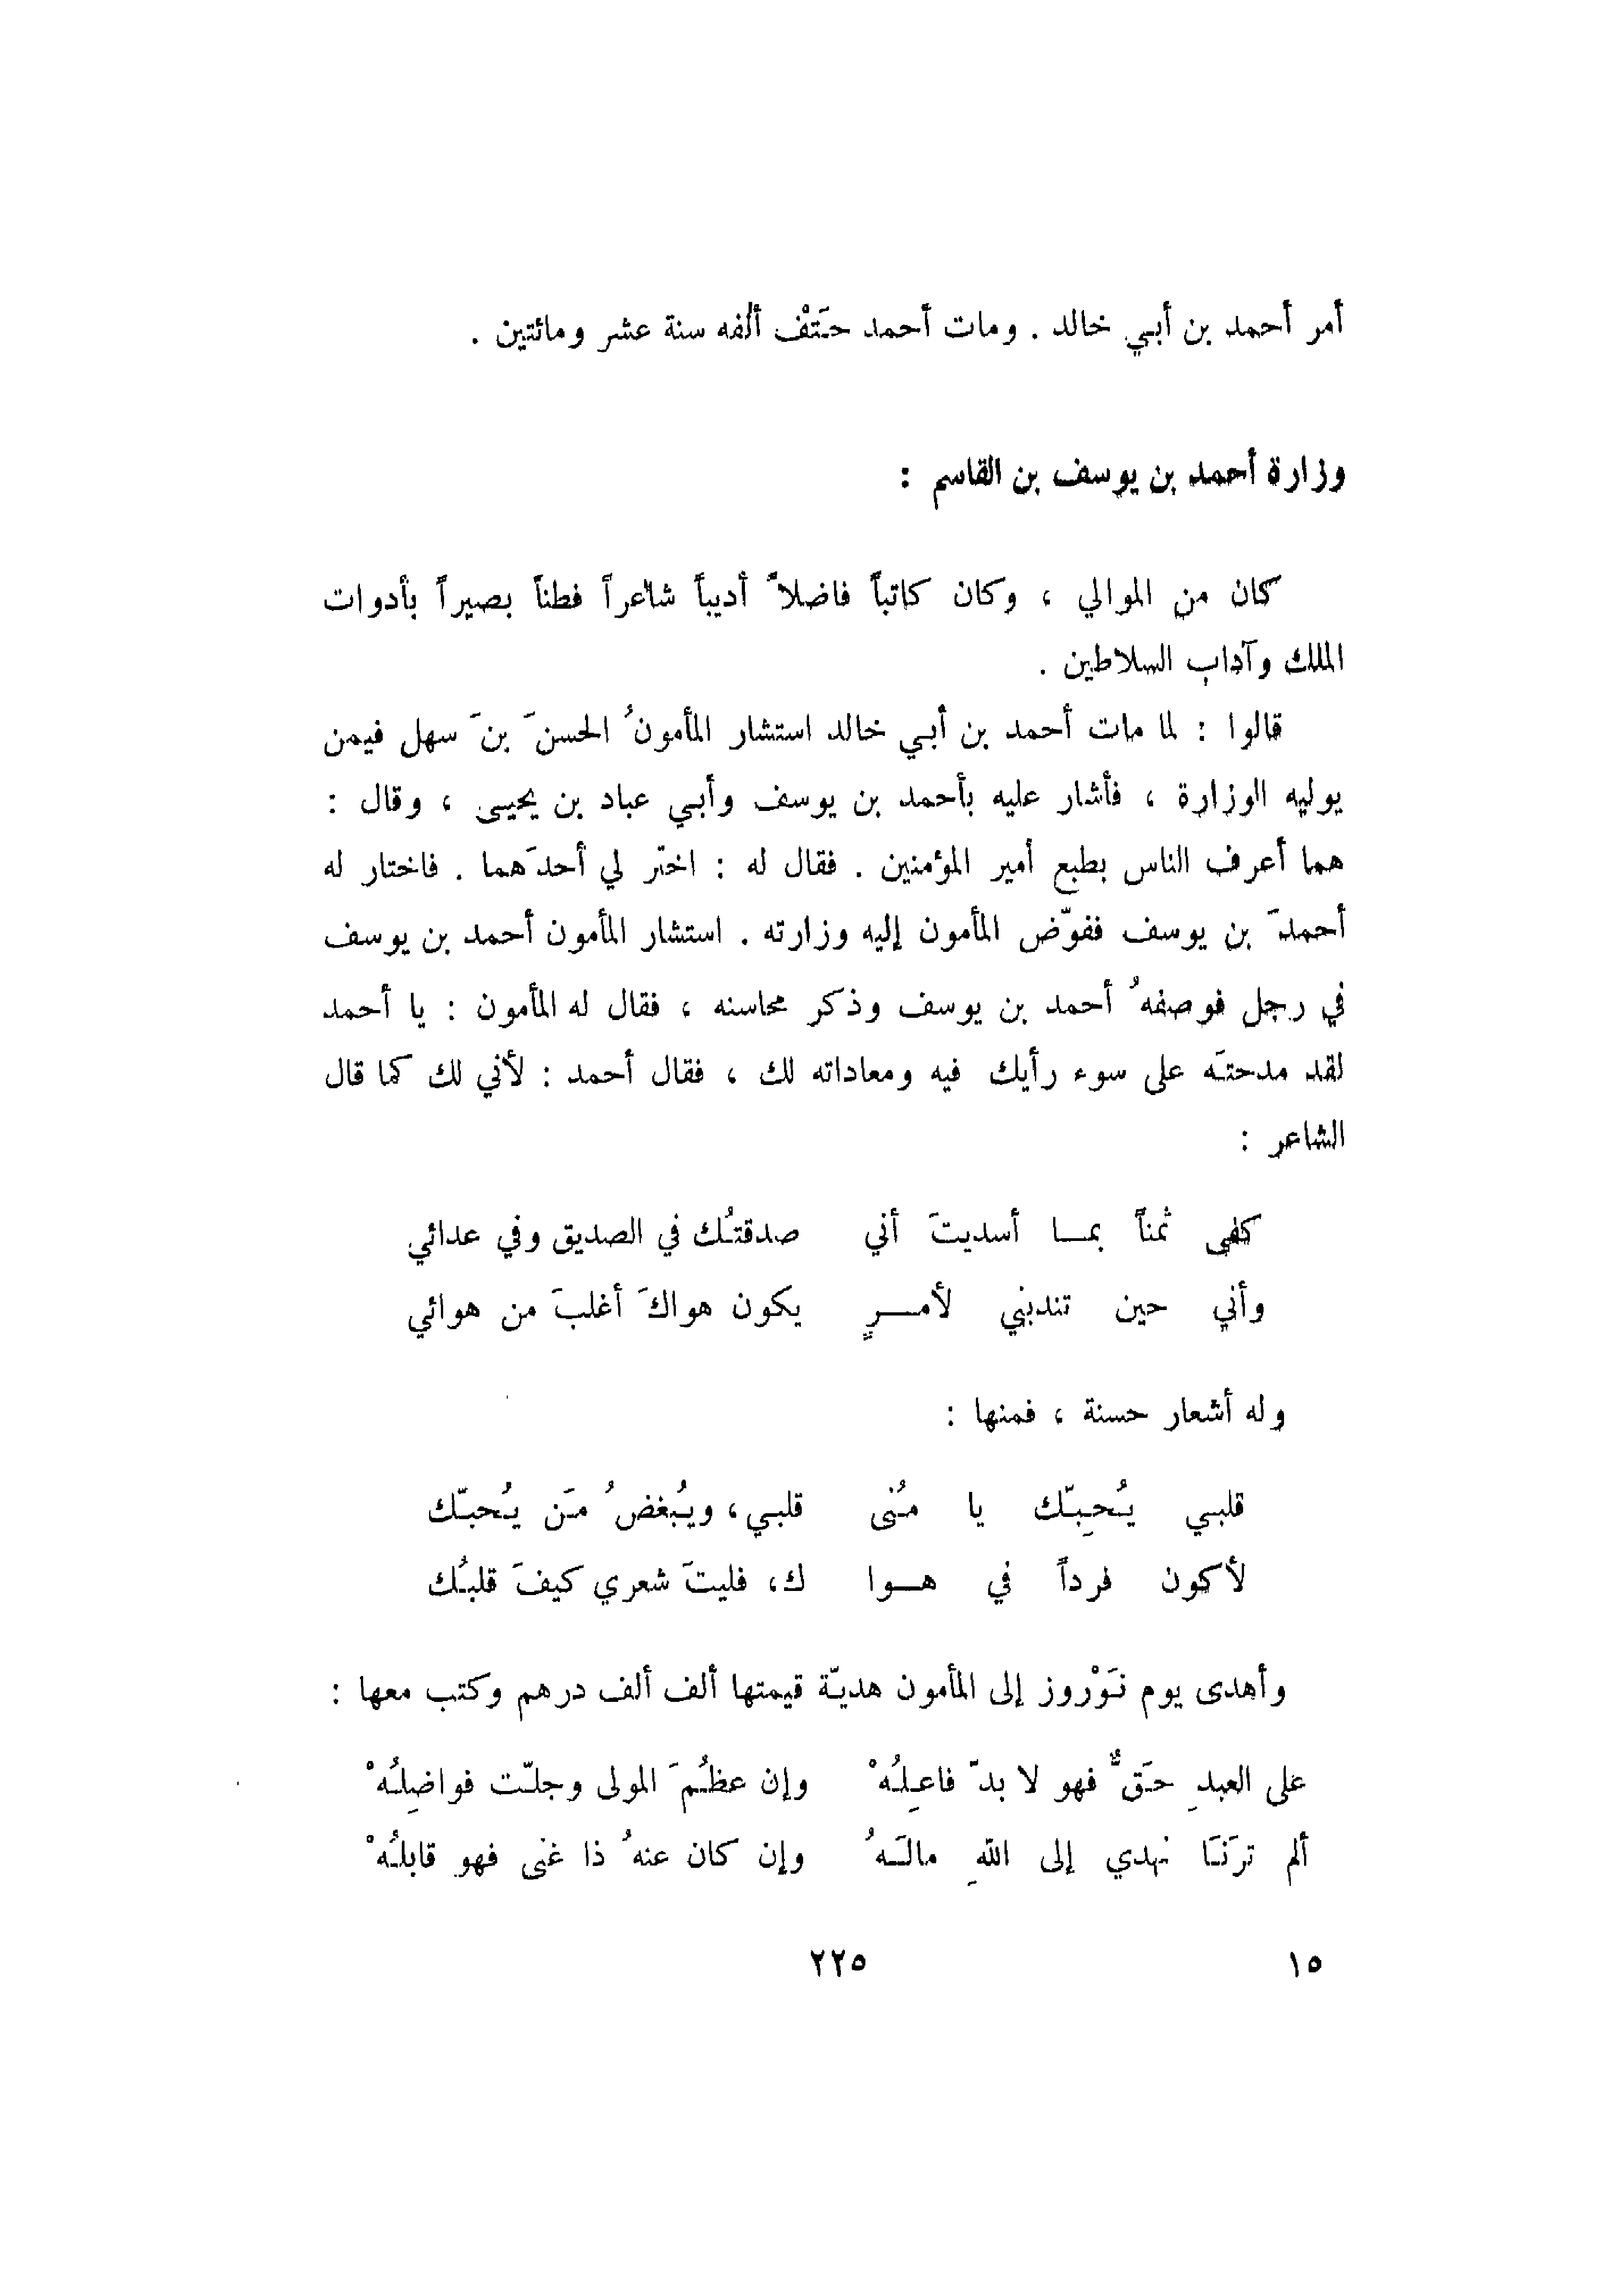 أمر أحمد بن أبي خالد . ومات أحمد حَتْف ألفه سنة عشر ومائتين .
وزارة أحمد بن يوسف بن القاسم :
كان من الموالي ، وكان كاتباً فاضلاً أديباً شاعراً فطناً بصيراً بأدوات
الملك وآداب السلاطين .
قالوا : لما مات أحمد بن أبي خالد استشار المأمونُ الحسنَ بنَ سهل فيمن
يوليه الوزارة ، فأشار عليه بأحمد بن يوسف وأبي عباد بن يحيى ، وقال :
هما أعرف الناس بطبع أمير المؤمنين . فقال له : اختَر لي أحدَهما . فاختار له
أحمدَ بن يوسف ففوّض المأمون إليه وزارته . استشار المأمون أحمد بن يوسف
في رجل فوصفهُ أحمد بن يوسف وذكر محاسنه ، فقال له المأمون : يا أحمد
لقد مدحتَه على سوء رأيك فيه ومعاداته لك ، فقال أحمد : لأني لك كما قال
الشاعر :
كفى ثمناً بمـا أسديتَ أني صدقتُك في الصديق وفي عدائي
وأني حين تندبني لأمـرٍ يكون هواكَ أغلبَ من هوائي
وله أشعار حسنة ، فمنها :
قلبي يُحِبّك يا مُنى قلبي، ويُبغضُ مَن يُحبّك
لأكون فرداً في هـوا ك، فليتَ شعري كيفَ قلبُك
وأهدى يوم نَوْروز إلى المأمون هديّة قيمتها ألف ألف درهم وكتب معها :
على العبدِ حَقٌّ فهو لا بدّ فاعِلُهْ وإن عظُمَ المولى وجلّت فواضِلُهْ
ألم ترَنَا نهدي إلى اللهِ مالَهُ وإن كان عنهُ ذا غنى فهو قابلُهْ
١٥ ٢٢٥